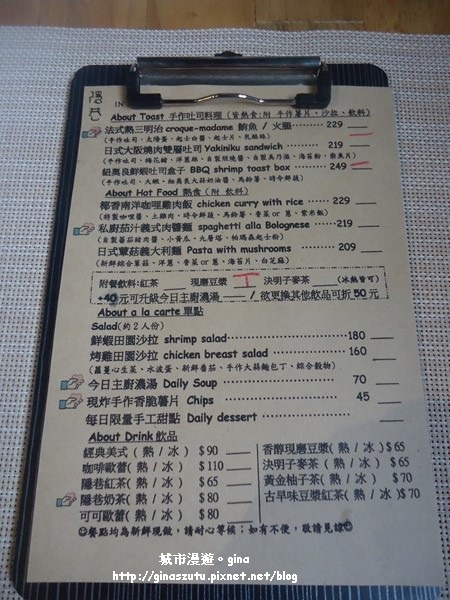 隱巷
IN
About Toast 手作吐司料理 (皆熱食:附 手作薯片、沙拉、飲料)
法式熱三明治 croque-madame 鮪魚 / 火腿 229
(手作吐司、太陽蛋、起士白醬、起士片、乳酪絲)
日式大阪燒肉雙層吐司 Yakiniku sandwich 219
紐奧良鮮蝦吐司盒子 BBQ shrimp toast box 249
About Hot Food 熱食 (附 飲料)
椰香南洋咖哩雞肉飯 chicken curry with rice 229
私廚茄汁義式肉醬麵 spaghetti alla Bolognese 219
(自製蕃茄豬肉醬、小黃瓜、九層塔、帕瑪森起士粉)
日式蕈菇義大利麵 Pasta with mushrooms 209
附餐飲料:紅茶 現磨豆漿 決明子麥茶 (冰熱皆可)
+40元可升級今日主廚濃湯 / 欲更換其他飲品可折50元
About a la carte 單點
Salad(約2人份)
鮮蝦田園沙拉 shrimp salad 180
烤雞田園沙拉 chicken breast salad 160
(蘿蔓心生菜、水波蛋、新鮮番茄、手作大蒜麵包丁、綜合穀物)
今日主廚濃湯 Daily Soup 70
現炸手作香脆薯片 Chips 45
每日限量手工甜點 Daily dessert
About Drink 飲品
經典美式 ( 熱 / 冰 ) $90
咖啡歐蕾( 熱 / 冰 ) $110
隱巷紅茶( 熱 / 冰 ) $65
隱巷奶茶( 熱 / 冰 ) $80
可可歐蕾( 熱 / 冰 ) $80
香醇現磨豆漿( 熱 / 冰 ) $65
決明子麥茶 ( 熱 / 冰 ) $65
黃金柚子茶( 熱 / 冰 ) $70
古早味豆漿紅茶( 熱 / 冰 ) $70
☺餐點均為新鮮現做，請耐心等候；如有不便，敬請見諒☺
城市漫遊。gina
http://ginaszutu.pixnet.net/blog